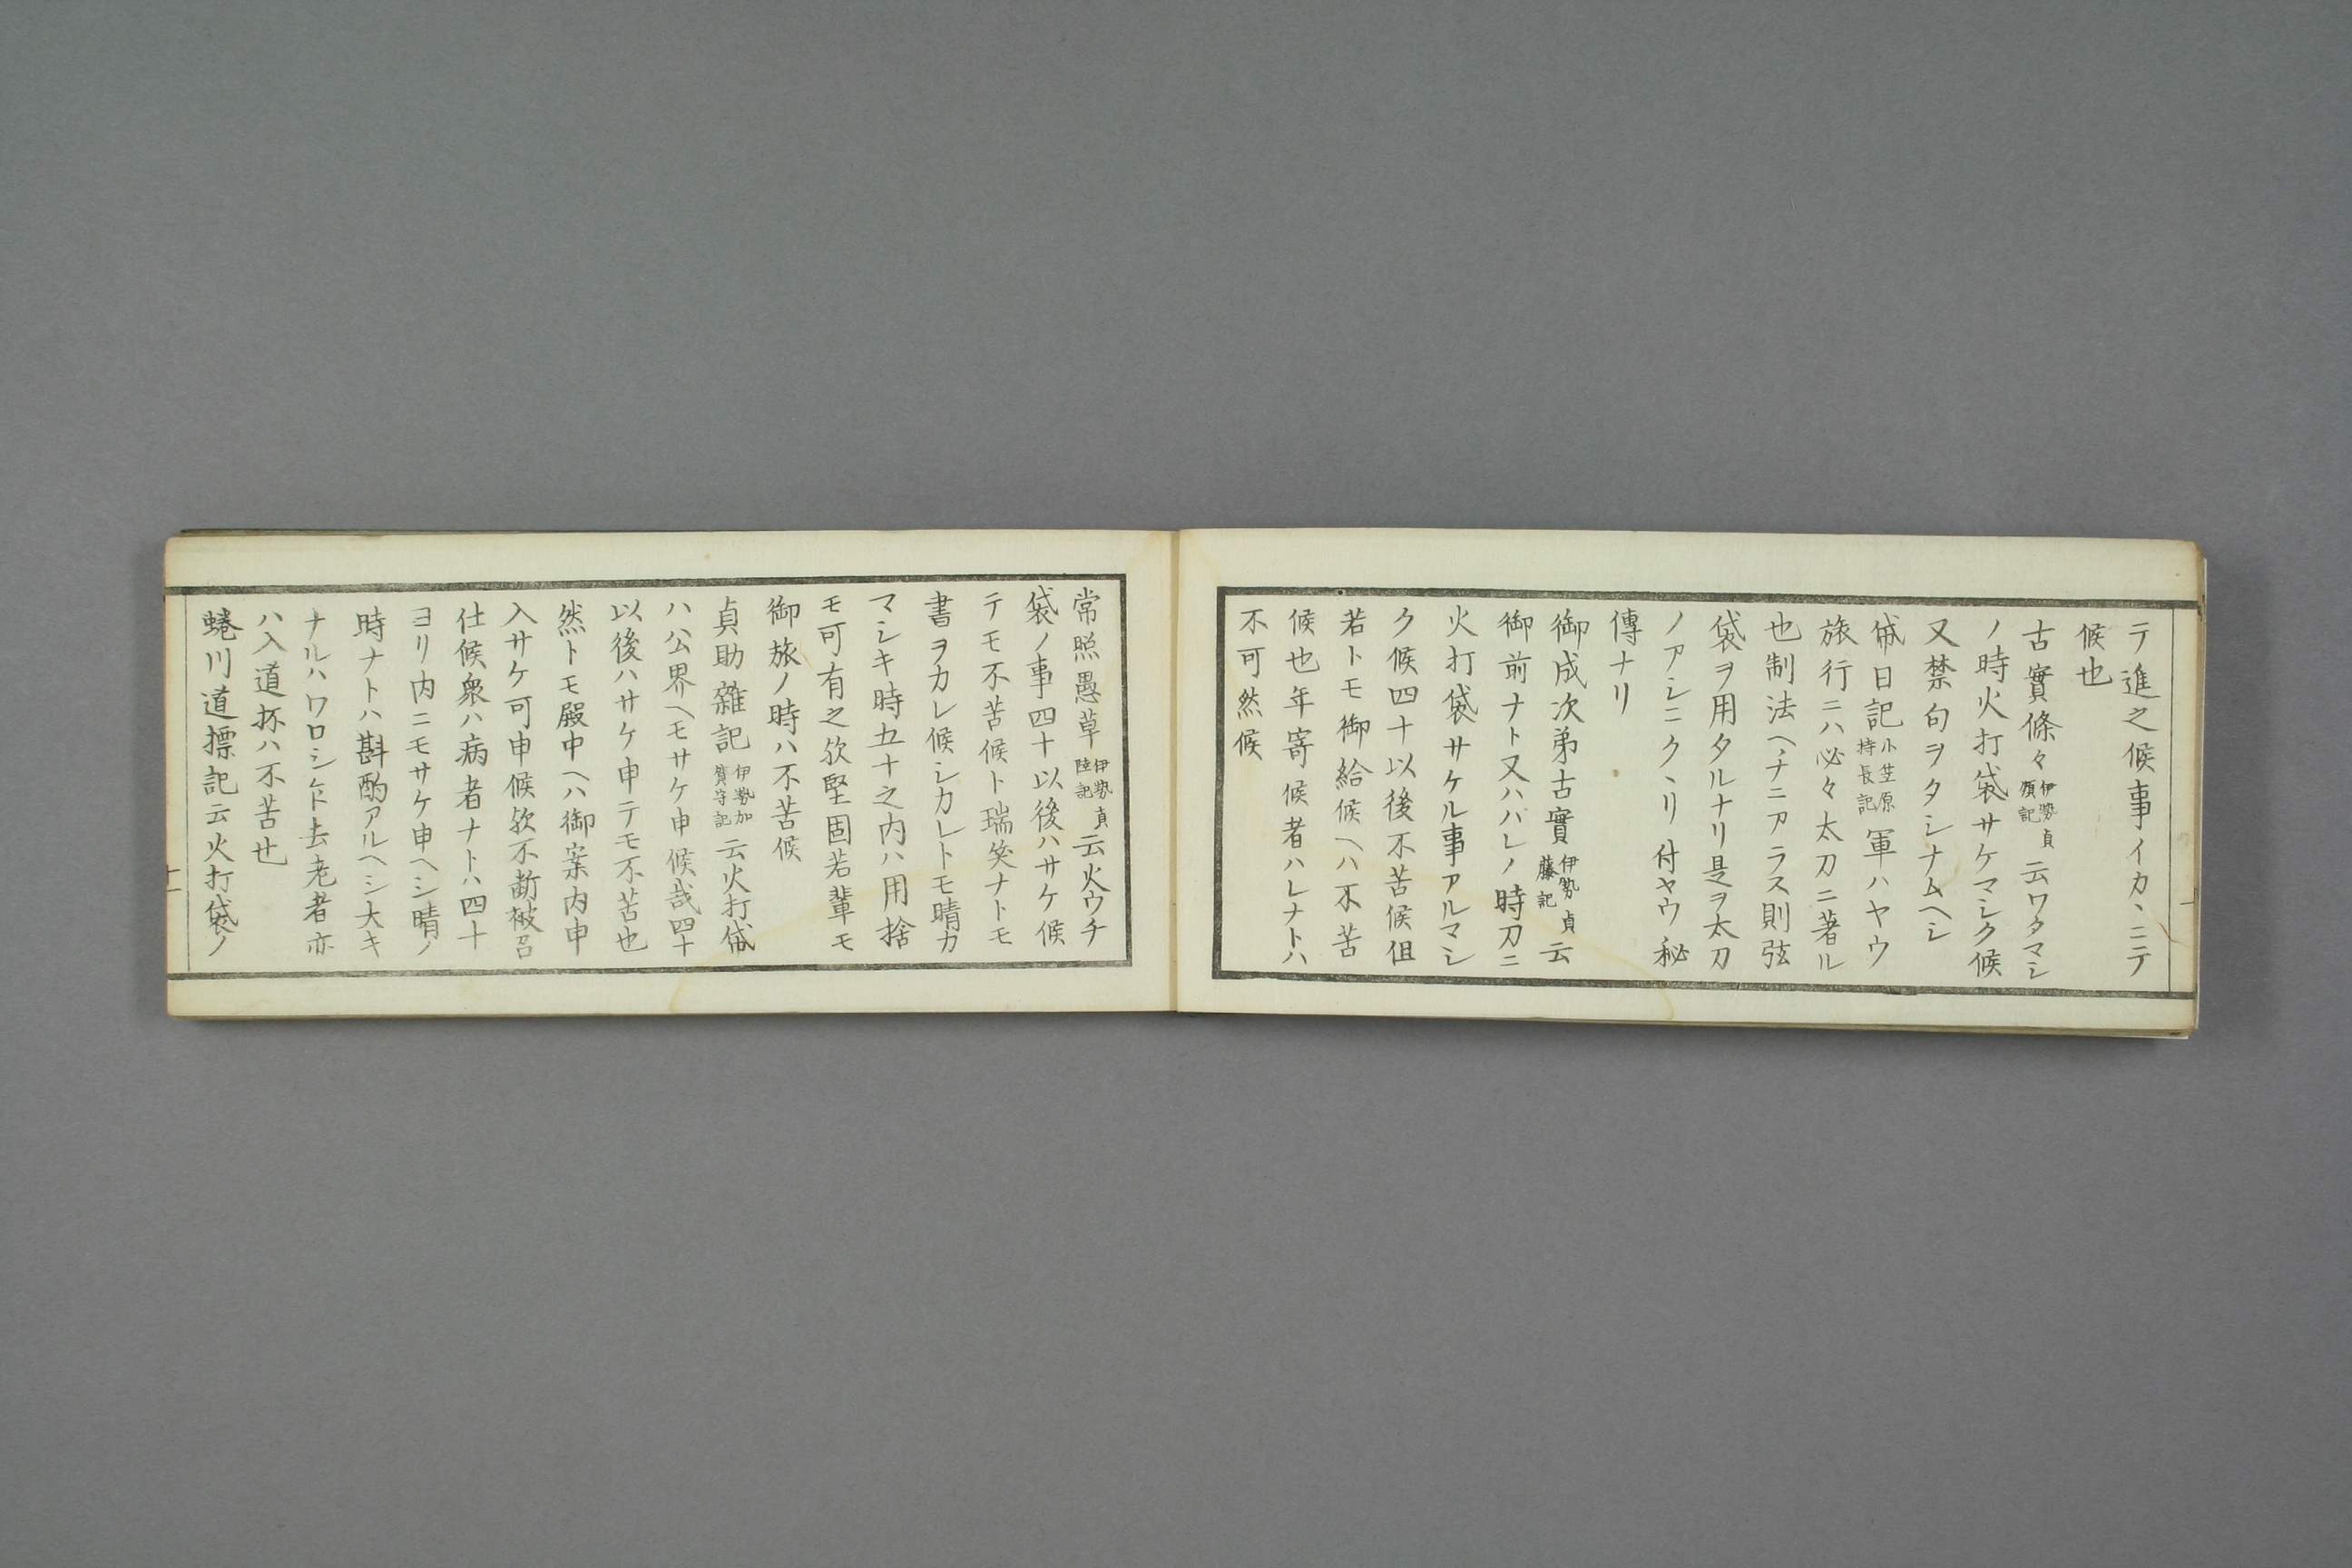 テ進之候事イカヽニテ
候也
古實條々伊勢貞頎記云ワタマシ
ノ時火打袋サケマシク候
又禁句ヲタシナムヘシ
佩日記小笠原持長記軍ハヤウ
旅行ニハ必々太刀ニ著ル
也制法ヘチニアラス則弦
袋ヲ用タルナリ是ヲ太刀
ノアシニクヽリ付ヤウ秘
傳ナリ
御成次弟古實伊勢貞藤記云
御前ナト又ハハレノ時刀ニ
火打袋サケル事アルマシ
ク候四十以後不苦候但
若トモ御給候ヘハ不苦
候也年寄候者ハレナトハ
不可然候
常照愚草伊勢貞陸記云火ウチ
袋ノ事四十以後ハサケ候
テモ不苦候ト瑞笑ナトモ
書ヲカレ候シカレトモ晴カ
マシキ時五十之内ハ用捨
モ可有之欤堅固若輩モ
御旅ノ時ハ不苦候
貞助雜記伊勢加賀守記云火打袋
ハ公界ヘモサケ申候哉四十
以後ハサケ申テモ不苦也
然トモ殿中ヘハ御案内申
入サケ可申候欤不断被召
仕候衆ハ病者ナトハ四十
ヨリ内ニモサケ申ヘシ晴ノ
時ナトハ斟酌アルヘシ大キ
ナルハワロシト云老者亦
ハ入道抔ハ不苦也
蜷川道標記云火打袋ノ
十一